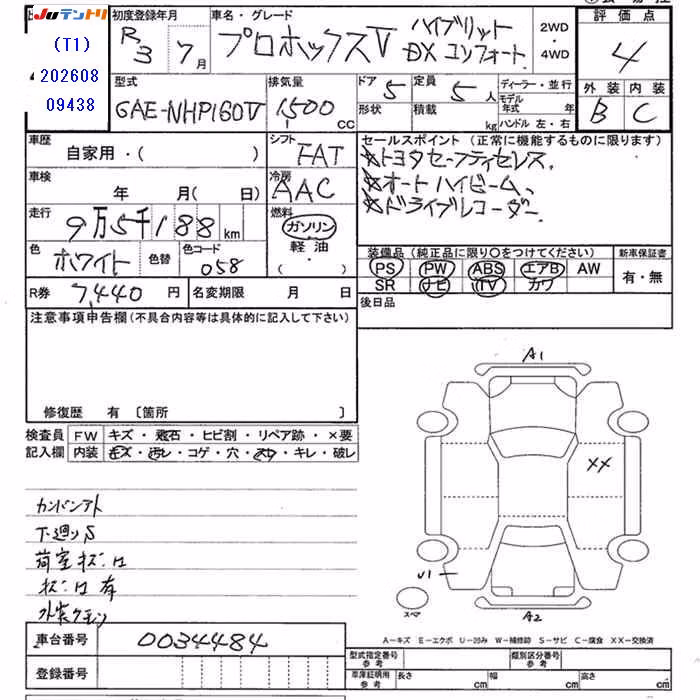 Juテントリ
(T1)
202608
09438
初度登録年月
R3 7月
車名・グレード
プロボックスV ハイブリット
DX コンフォート
2WD
・
4WD
評価点
4
外装 内装
B C
型式
6AE-NHP160V
排気量
1500 cc
ドア 5
形状
定員 5人
積載 kg
ディーラー・並行
モデル年式 年
ハンドル 左・右
車歴
自家用・( )
シフト
FAT
セールスポイント(正常に機能するものに限ります)
☆トヨタセーフティセンス
☆オートハイビーム、
☆ドライブレコーダー
車検
年 月(日)
冷房
AAC
走行
9万5千188km
燃料
ガソリン
・
軽油
・
( )
色
ホワイト
色替
色コード
058
装備品(純正品に限り○をつけてください)
新車保証書
PS PW ABS エアB AW
SR ナビ TV カワ
有・無
R券 7,440円
名変期限 月 日
後日品
注意事項申告欄(不具合内容等は具体的に記入して下さい)
修復歴 有 〔箇所 〕
検査員
記入欄
FW キズ・飛石・ヒビ割・リペア跡・×要
内装 キズ・汚レ・コゲ・穴・スレ・キレ・破レ
カンバンアト
下廻りS
荷室キズ・凹
キズ・凹 有
A1
XX
U1
スペア
A2
A-キズ E-エクボ U-凹み W-補修跡 S-サビ C-腐食 XX-交換済
車台番号
0034484
登録番号
型式指定番号
参考
類別区分番号
参考
車庫証明用
参考
長さ cm
幅 cm
高さ cm